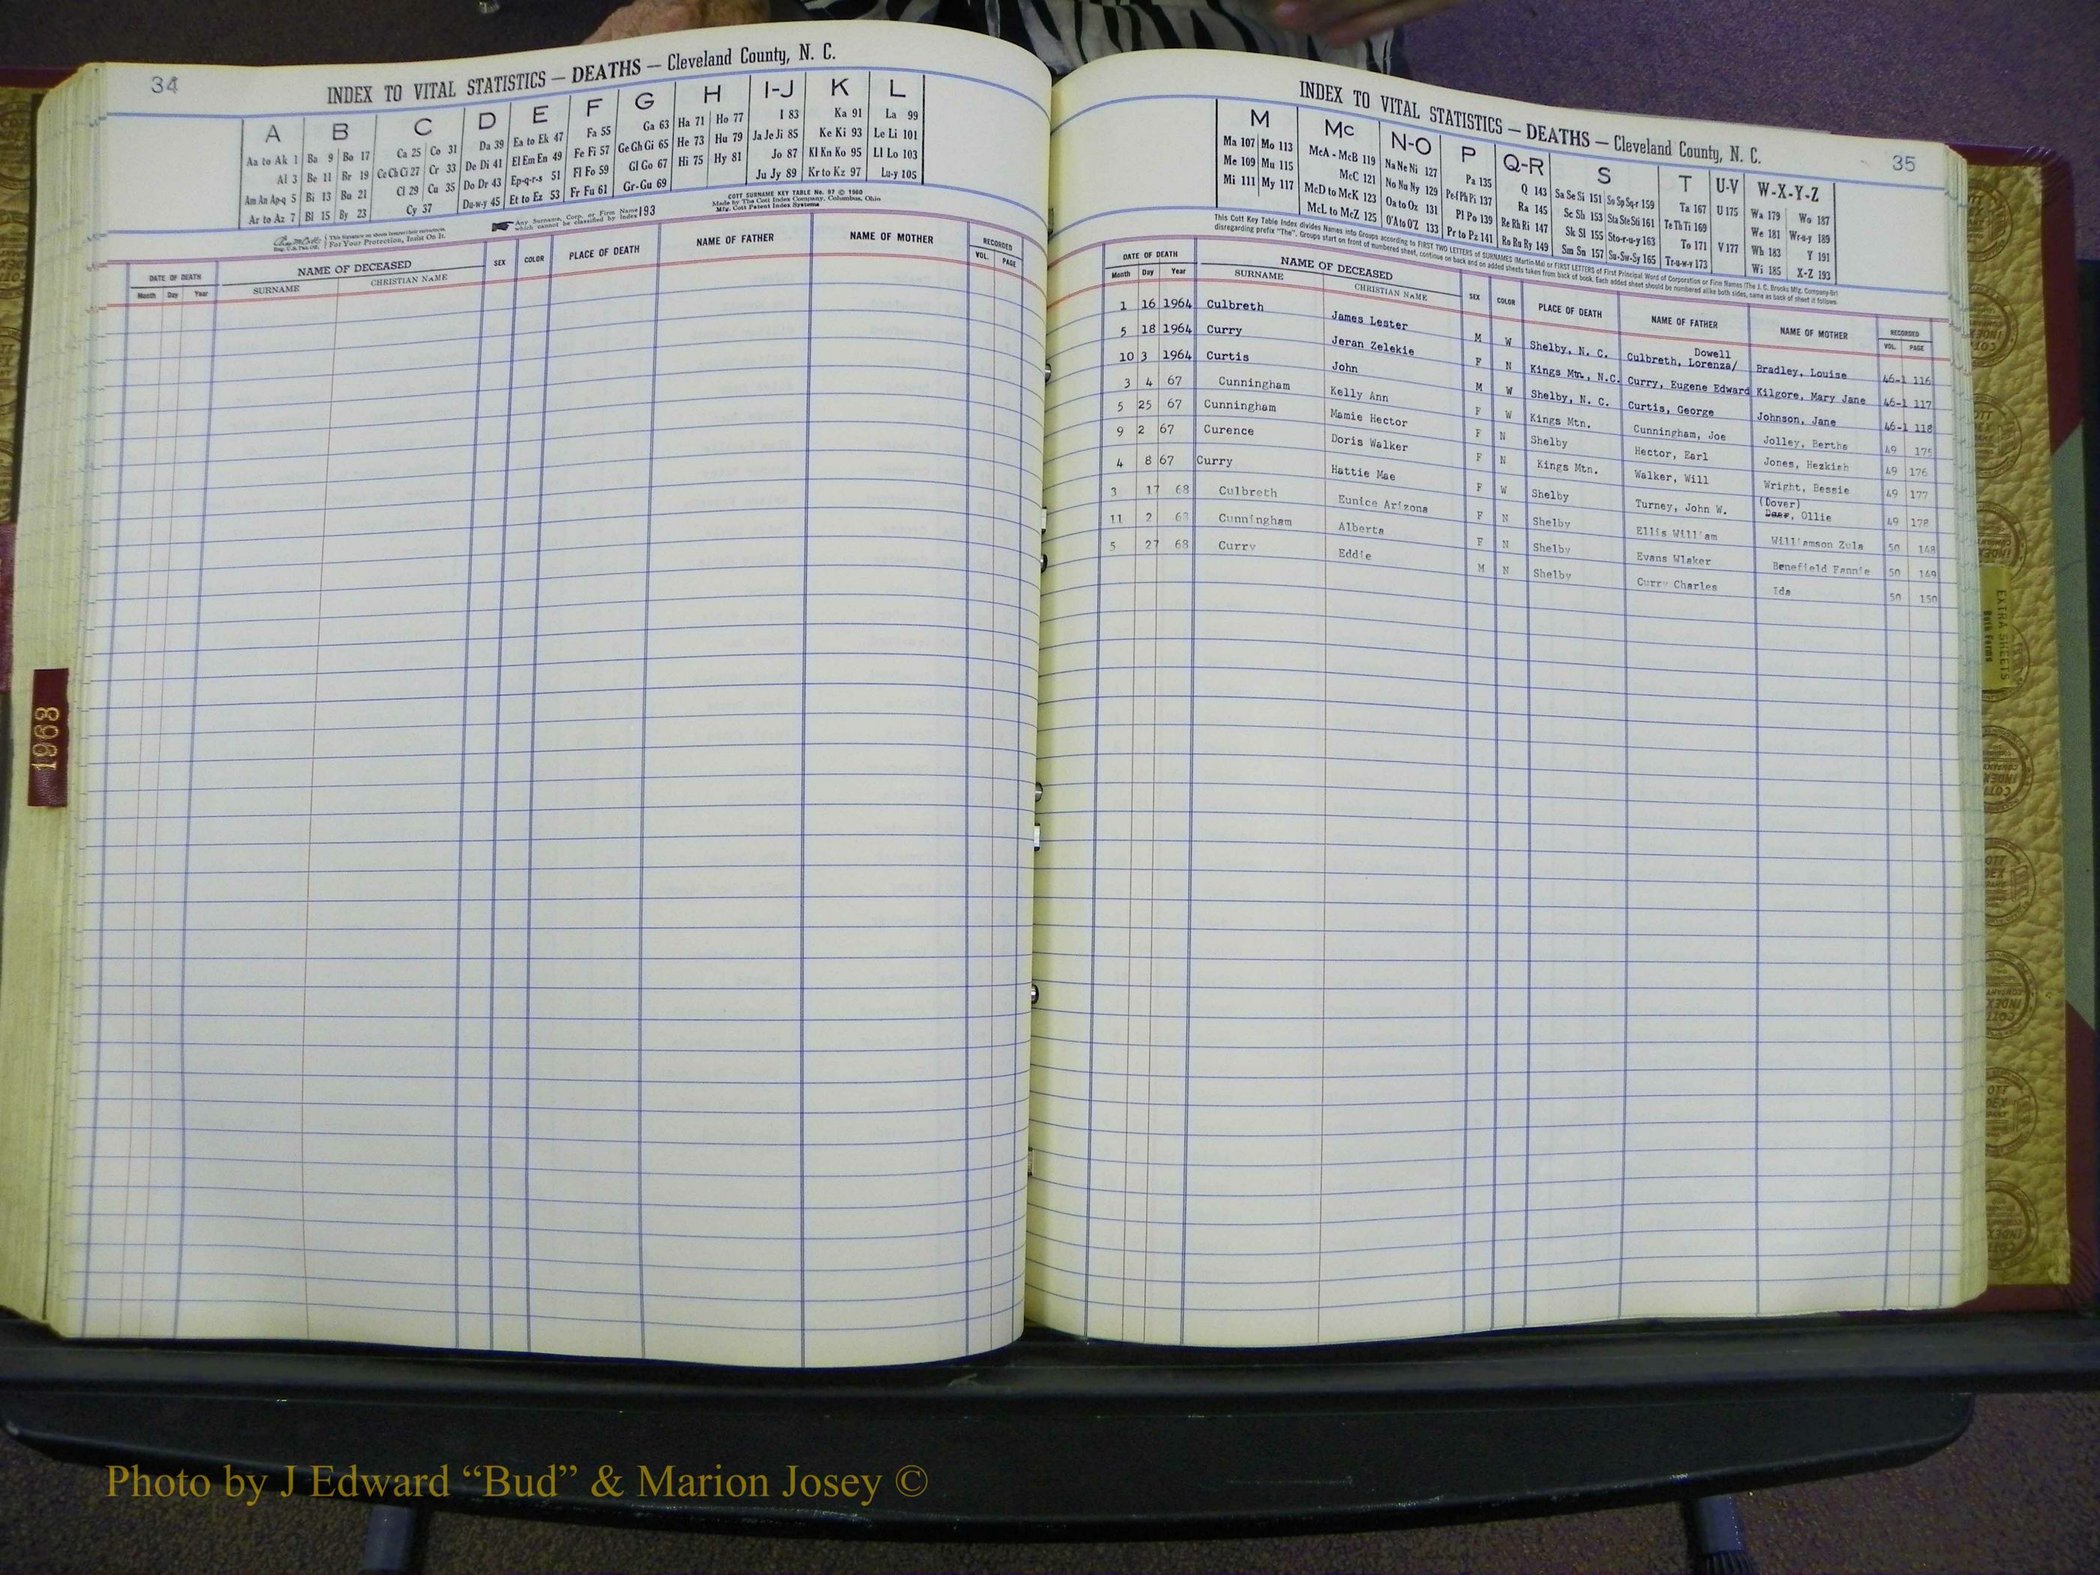 34
INDEX TO VITAL STATISTICS — DEATHS — Cleveland County, N. C.
A B C D E F G H I-J K L
Aa to Ak 1 Ba 9 Bo 17 Ca 25 Co 31 Da 39 Ea to Ek 47 Fa 55 Ga 63 Ha 71 Ho 77 I 83 Ka 91 La 99
Al 3 Be 11 Br 19 Ce Ch Ci 27 Cr 33 De Di 41 El Em En 49 Fe Fi 57 Ge Gh Gi 65 He 73 Hu 79 Ja Je Ji 85 Ke Ki 93 Le Li 101
Am An Ap-q 5 Bi 13 Bu 21 Cl 29 Cu 35 Do Dr 43 Ep-q-r-s 51 Fl Fo 59 Gl Go 67 Hi 75 Hy 81 Jo 87 Kl Kn Ko 95 Ll Lo 103
Ar to Az 7 Bl 15 By 23 Cy 37 Du-w-y 45 Et to Ez 53 Fr Fu 61 Gr-Gu 69 Ju Jy 89 Kr to Kz 97 Lu-y 105
COTT SURNAME KEY TABLE No. 97 © 1960
Made by The Cott Index Company, Columbus, Ohio
Mfg. Cott Patent Index Systems
For Your Protection, Insist On It.
Any Surname, Corp. or Firm Name which cannot be classified by Index 193
DATE OF DEATH NAME OF DECEASED SEX COLOR PLACE OF DEATH NAME OF FATHER NAME OF MOTHER RECORDED
Month Day Year SURNAME CHRISTIAN NAME VOL. PAGE
35
INDEX TO VITAL STATISTICS — DEATHS — Cleveland County, N. C.
M Mc N-O P Q-R S T U-V W-X-Y-Z
Ma 107 Mo 113 McA - McB 119 Na Ne Ni 127 Pa 135 Q 143 Sa Se Si 151 So Sp Sq-r 159 Ta 167 U 175 Wa 179 Wo 187
Me 109 Mu 115 McC 121 No Nu Ny 129 Pe-f Ph Pi 137 Ra 145 Sc Sh 153 Sta Ste Sti 161 Te Th Ti 169 We 181 Wr-u-y 189
Mi 111 My 117 McD to McK 123 Oa to Oz 131 Pl Po 139 Re Rh Ri 147 Sk Sl 155 Sto-r-u-y 163 To 171 V 177 Wh 183 Y 191
McL to McZ 125 O'A to O'Z 133 Pr to Pz 141 Ro Ru Ry 149 Sm Sn 157 Su-Sw-Sy 165 Tr-u-w-y 173 Wi 185 X-Z 193
This Cott Key Table Index divides Names into Groups according to FIRST TWO LETTERS of SURNAMES (Martin-Ma) or FIRST LETTERS of First Principal Word of Corporation or Firm Names (The J. C. Brooks Mfg. Company-Br)
disregarding prefix "The". Groups start on front of numbered sheet, continue on back and on added sheets taken from back of book. Each added sheet should be numbered alike both sides, same as back of sheet it follows.
DATE OF DEATH NAME OF DECEASED SEX COLOR PLACE OF DEATH NAME OF FATHER NAME OF MOTHER RECORDED
Month Day Year SURNAME CHRISTIAN NAME VOL. PAGE
1 16 1964 Culbreth James Lester M W Shelby, N. C. Culbreth, Lorenza/ Dowell Bradley, Louise 46-1 116
5 18 1964 Curry Jeran Zelekie F N Kings Mtn., N.C. Curry, Eugene Edward Kilgore, Mary Jane 46-1 117
10 3 1964 Curtis John M W Shelby, N. C. Curtis, George Johnson, Jane 46-1 118
3 4 67 Cunningham Kelly Ann F W Kings Mtn. Cunningham, Joe Jolley, Bertha 49 175
5 25 67 Cunningham Mamie Hector F N Shelby Hector, Earl Jones, Hezkiah 49 176
9 2 67 Curence Doris Walker F N Kings Mtn. Walker, Will Wright, Bessie 49 177
4 8 67 Curry Hattie Mae F W Shelby Turney, John W. (Dover) , Ollie 49 178
3 17 68 Culbreth Eunice Arizona F N Shelby Ellis William Williamson Zula 50 148
11 2 68 Cunningham Alberta F N Shelby Evans Wlaker Benefield Fannie 50 149
5 27 68 Curry Eddie M N Shelby Curry Charles Ida 50 150
1968
EXTRA SHEETS
Photo by J Edward “Bud” & Marion Josey ©